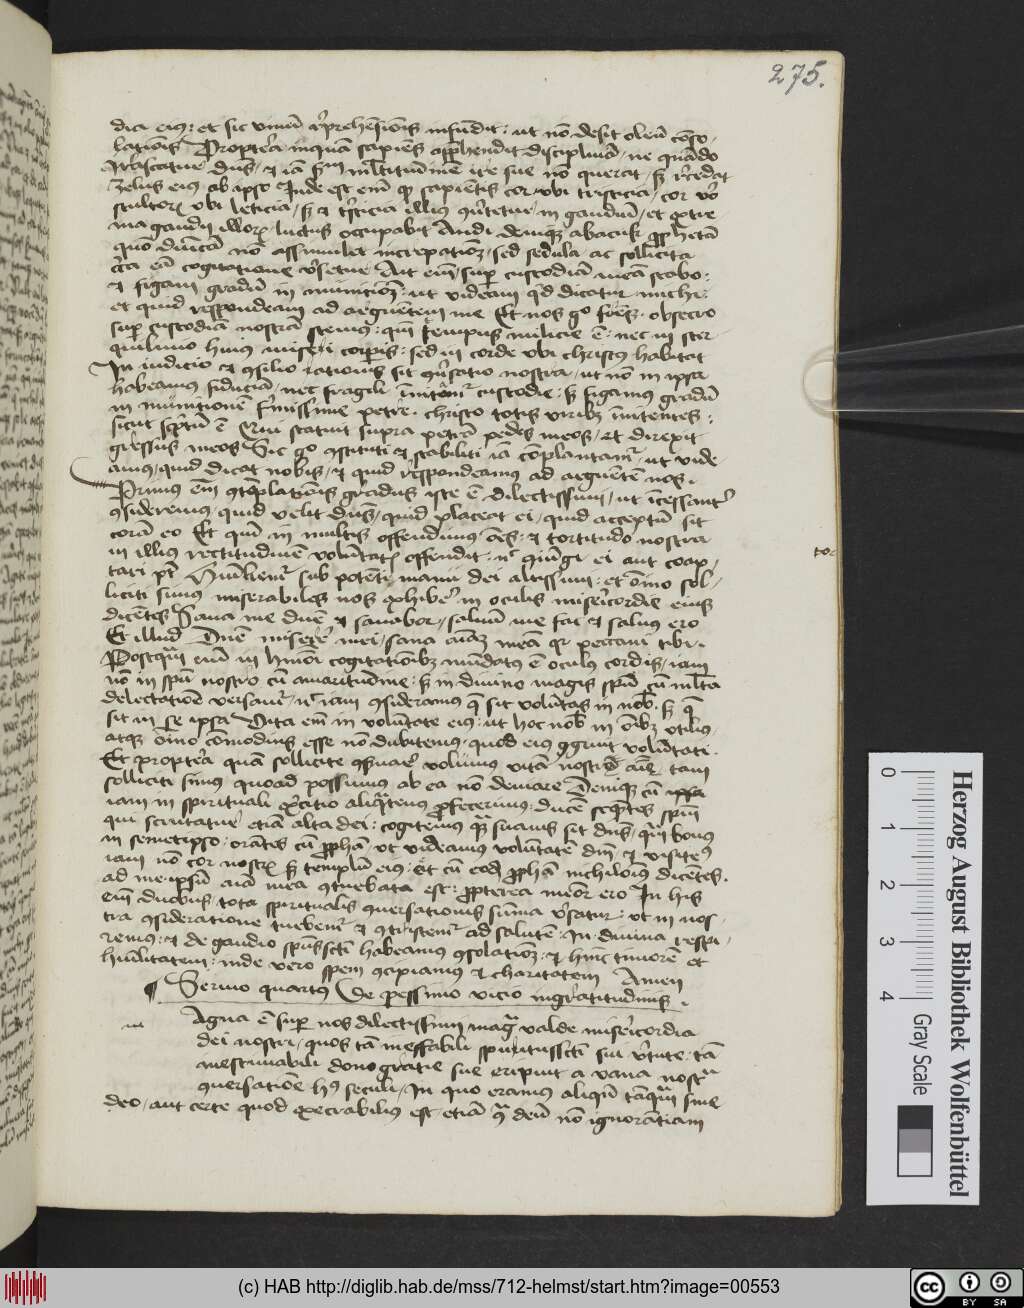 275.
dia eius: et sic vinum reprehensionis infundit: ut non desit oleum conso-
lationis Propterea inquam sapiens apprehendit disciplinam, ne quando
irascatur dominus, et iam secundum multitudinem ire sue non querat, sed recedat
zelus eius ab ipso Inde est enim quod sapientis cor, ubi tristicia, cor vero
stultorum ubi leticia, sed et tristicia illius convertetur in gaudium, et extre-
ma gaudii illorum luctus occupabit Audi denique abacuk prophetam
quomodo dominicam non dissimulet increpationem, sed sedula ac sollicita
circa eam cogitatione versetur Ait enim, super custodiam meam stabo:
et figam gradum in munitionem: ut videam quid dicatur michi:
et quid respondeam ad arguentem me Et nos ergo fratres, obsecro
super custodiam nostram stemus: quoniam tempus milicie est: nec in ster-
quilinio huius miseri corporis: sed in corde ubi christus habitat
In iudicio et consilio rationis sit conversatio nostra, ut non in ipsa
habeamus fiduciam, nec fragili innitamur custodie, sed figamus gradum
in munitionem firmissime petre, christo totis viribus innitentes:
sicut scriptum est Qui statuit supra petram pedes meos, et direxit
gressus meos Sic ergo constituti et stabiliti iam complantamur, ut vide-
amus, quid dicat nobis, et quid respondeamus ad arguentem nos.
Primus enim contemplationis gradus iste est dilectissimi, ut incessanter
consideremus, quid velit dominus, quid placeat ei, quid acceptum sit
coram eo Et quoniam in multis offendimus omnes: et tortitudo nostra
in illius rectitudinem voluntatis offendit: nec coniungi ei aut coap-
to-
tari potest Humiliemur sub potenti manu dei altissimi: et omnino sol-
liciti simus miserabiles nos exhibere in oculis misericordie eius
dicentes Sana me domine et sanabor, salvum me fac et salvus ero
Et illud Domine miserere mei, sana animam meam quia peccavi tibi.
Postquam enim in huiusmodi cogitationibus mundatus est oculus cordis, iam
non in spiritu nostro cum amaritudine, sed in divino magis spiritu cum multa
delectatione versamur, nec iam consideramus que sit voluntas in nobis, sed que
sit in se ipsa Vita enim in voluntate eius: ut hoc nobis in omnibus utilius,
atque omnino commodius esse non dubitemus, quod eius congruit voluntati.
Et propterea quam sollicite conservare volumus vitam nostre anime tam
solliciti simus quoad possumus ab ea non deviare Denique cum
iam in spirituali exercitio aliquatenus profecerimus, ducem sequentes spiritum
qui scrutatur etiam alta dei: cogitemus quam suavis sit dominus, quam bonus
in semetipso, orantes cum propheta, ut videamus voluntatem domini et visitemus
iam non cor nostrum sed templum eius: et cum eodem propheta nichilominus dicentes.
ad me ipsum anima mea conturbata est: propterea memor ero In his
enim duobus tota spiritualis conversationis summa versatur: ut in nos-
tra consideratione turbemur et contristemur ad salutem: In divina respi-
remus: et de gaudio spiritussancti habeamus consolationem: et hinc timorem et
humilitatem: inde vero spem concipiamus et charitatem Amen
Sermo quartus De pessimo vicio ingratitudinis.
Magna est super nos dilectissimi magna valde misericordia
dei nostri, quos tam ineffabili spiritussancti sui virtute: tam
inestimabili dono gratie sue eripuit a vana nostra
conversatione huius seculi, In quo eramus aliquando tamquam sine
deo, aut certe quod execrabilius est etiam contra deum non ignorantiam
Herzog August Bibliothek Wolfenbüttel
0 1 2 3 4
Gray Scale
(c) HAB http://diglib.hab.de/mss/712-helmst/start.htm?image=00553
cc BY SA